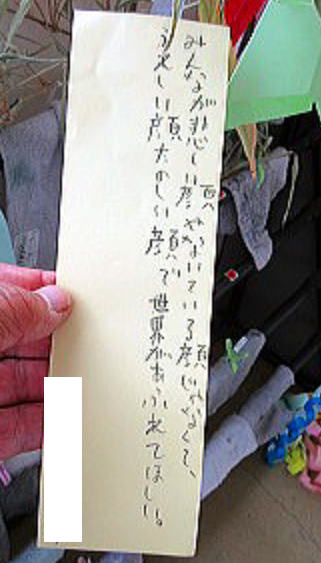 みんなが悲しい顔やないている顔じゃなくて、
うれしい顔たのしい顔で世界があふれてほしい。